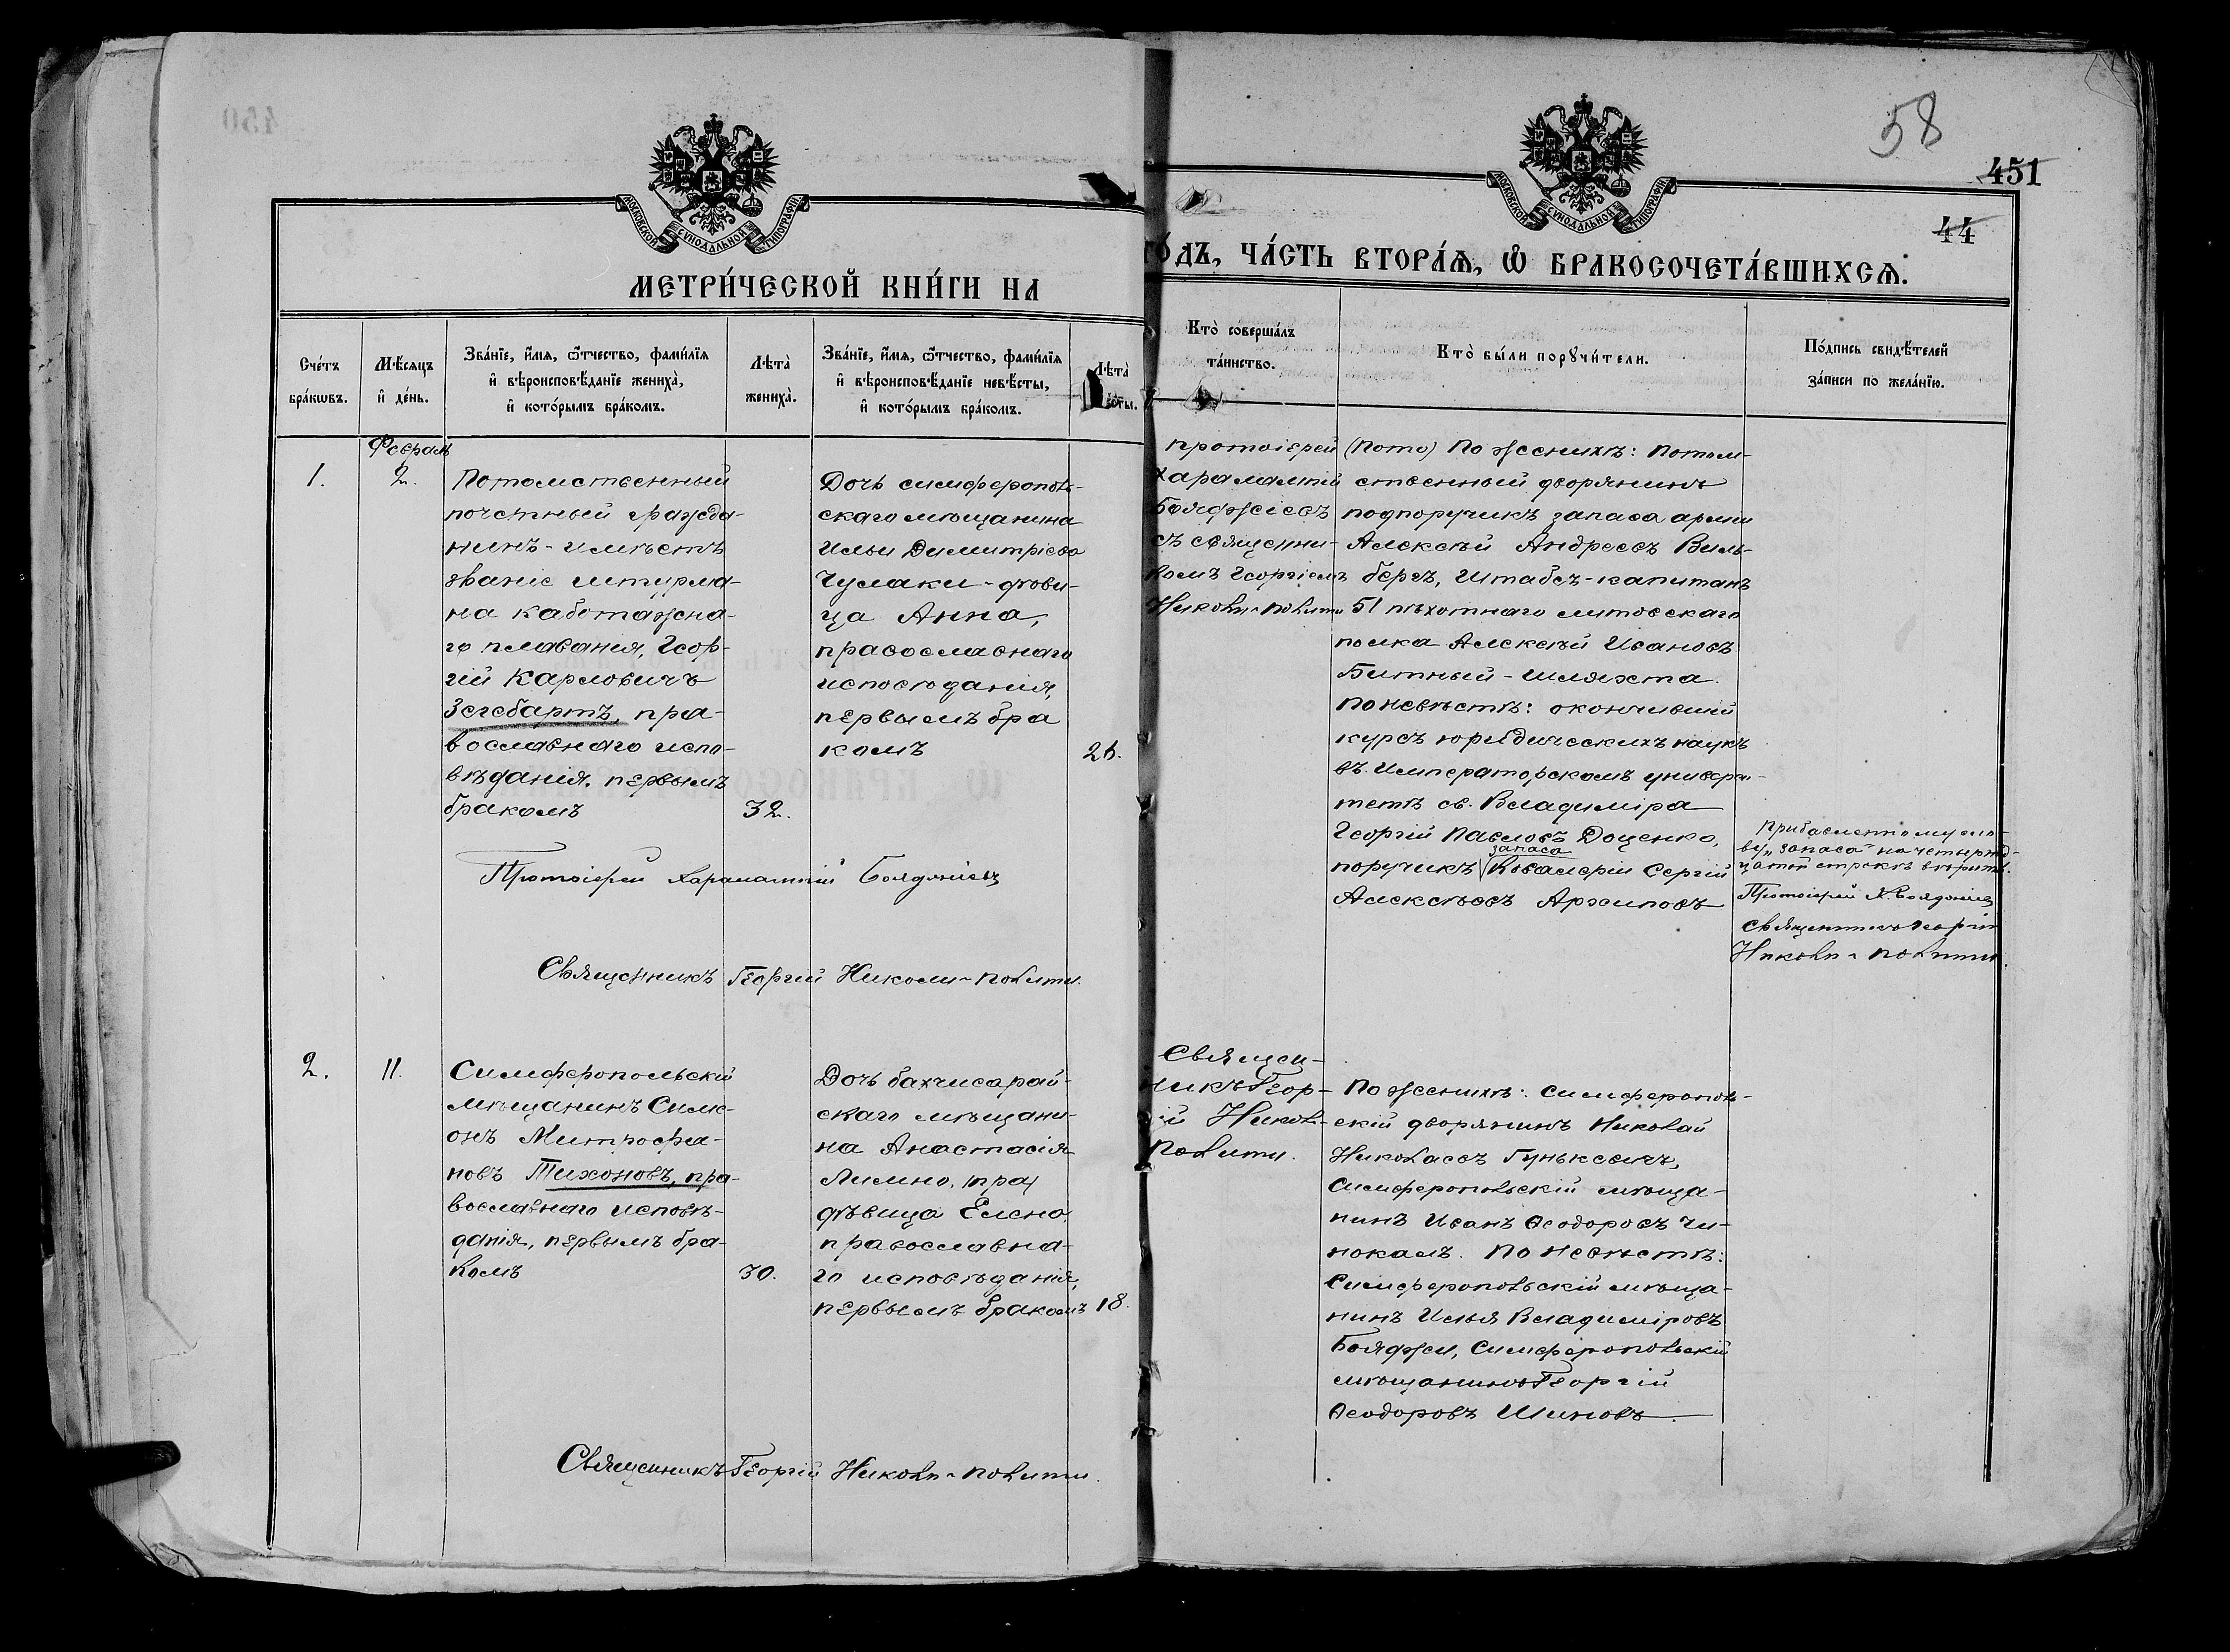 58
451
44
МОСКОВСКОЙ СѴНОДАЛЬНОЙ ТИПОГРАФІИ
МОСКОВСКОЙ СѴНОДАЛЬНОЙ ТИПОГРАФІИ
МЕТРИ́ЧЕСКОЙ КНИ́ГИ НА
ГО́ДЪ, ЧА́СТЬ ВТОРА́Ѧ, Ѡ҆ БРАКОСОЧЕТА́ВШИХСѦ.
Сче́тъ
бра́кѡвъ.
Мѣ́сяцъ
и҆ де́нь.
Зва́нїе, и҆́мѧ, ѻ҆́тчество, фами́лїѧ
и҆ вѣроисповѣ́данїе жениха̀,
и҆ кото́рымъ бра́комъ.
Лѣта̀
жениха̀.
Зва́нїе, и҆́мѧ, ѻ҆́тчество, фами́лїѧ
и҆ вѣроисповѣ́данїе невѣ́сты,
и҆ кото́рымъ бра́комъ.
Лѣта̀
Кто̀ соверша́лъ
та́инство.
Кто̀ бы́ли порꙋчи́тели.
По́дпись свидѣ́телей
за́писи по жела́нїю.
1.
Февраль
2.
Потомственный
почетный гражда-
нинъ-имѣетъ
званіе штурма-
на каботажна-
го плаванія, Геор-
гій Карловичъ
Зегебартъ, пра-
вославнаго испо-
вѣданія, первымъ
бракомъ
32.
Дочь симферополь-
скаго мѣщанина
Ильи Димитріева
Чумаки-дѣви-
ца Анна,
православнаго
исповѣданія,
первымъ бра
комъ
Протоіерей
Харалампій
Бояджіевъ
съ священни-
комъ Георгіемъ
Николи-Полити
(Пото) По женихѣ: потом-
ственный дворянинъ
подпоручикъ запаса арміи
Алексѣй Андреевъ Виль-
бергъ, Штабсъ-капитанъ
51 пѣхотнаго литовскаго
полка Алексѣй Ивановъ
Битный-Шляхта.
По невѣстѣ: окончившій
курсъ юридическихъ наукъ
въ Императорскомъ универси-
тетѣ св. Владиміра
Георгій Павловъ Доценко,
запаса
поручикъ Кавалеріи Сергій
Алексѣевъ Архиповъ
ву „запаса“ на четырнад-
цатой строкѣ вѣрить.
Протоіерей Х. Бояджіевъ
Священникъ Георгій
Николи-Полити.
Протоіерей Харалампій Бояджіевъ
Священникъ Георгій Николи-Полити.
2.
11.
Симферопольскій
мѣщанинъ Симе-
онъ Митрофа-
новъ Тихоновъ, пра-
вославнаго исповѣ-
данія, первымъ бра-
комъ
30.
Дочь бахчисарай-
скаго мѣщани-
на Анастасія
Лимно, (пра)
дѣвица Елена,
православна-
го исповѣданія,
первымъ бракомъ
18.
Священ-
никъ Геор-
гій Никол-
Полити.
По женихѣ: симферополь-
скій дворянинъ Николай
Николаевъ Гунькевичъ,
симферопольскій мѣща-
нинъ Иванъ Ѳеодоровъ Чи-
нокалъ. По невѣстѣ:
Симферопольскій мѣща-
нинъ Илья Владиміровъ
Бояджи, Симферопольскій
мѣщанинъ Георгій
Ѳеодоровъ Шиновъ.
Священникъ Георгій Николи-Полити.